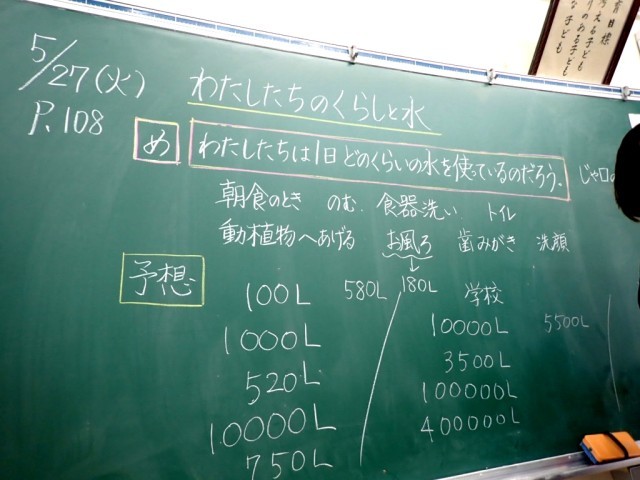 育目標
考える子ども
りのある子ども
な子ども
5/27(火)
わたしたちのくらしと水
P.108
め
わたしたちは1日どのくらいの水を使っているのだろう。
じゃ口
朝食のとき のむ. 食器洗い トイレ
動植物へあげる お風ろ 歯みがき 洗顔
予想
100L 580L 180L
1000L
520L
10000L
750L
学校
10000L 5500L
3500L
100000L
400000L